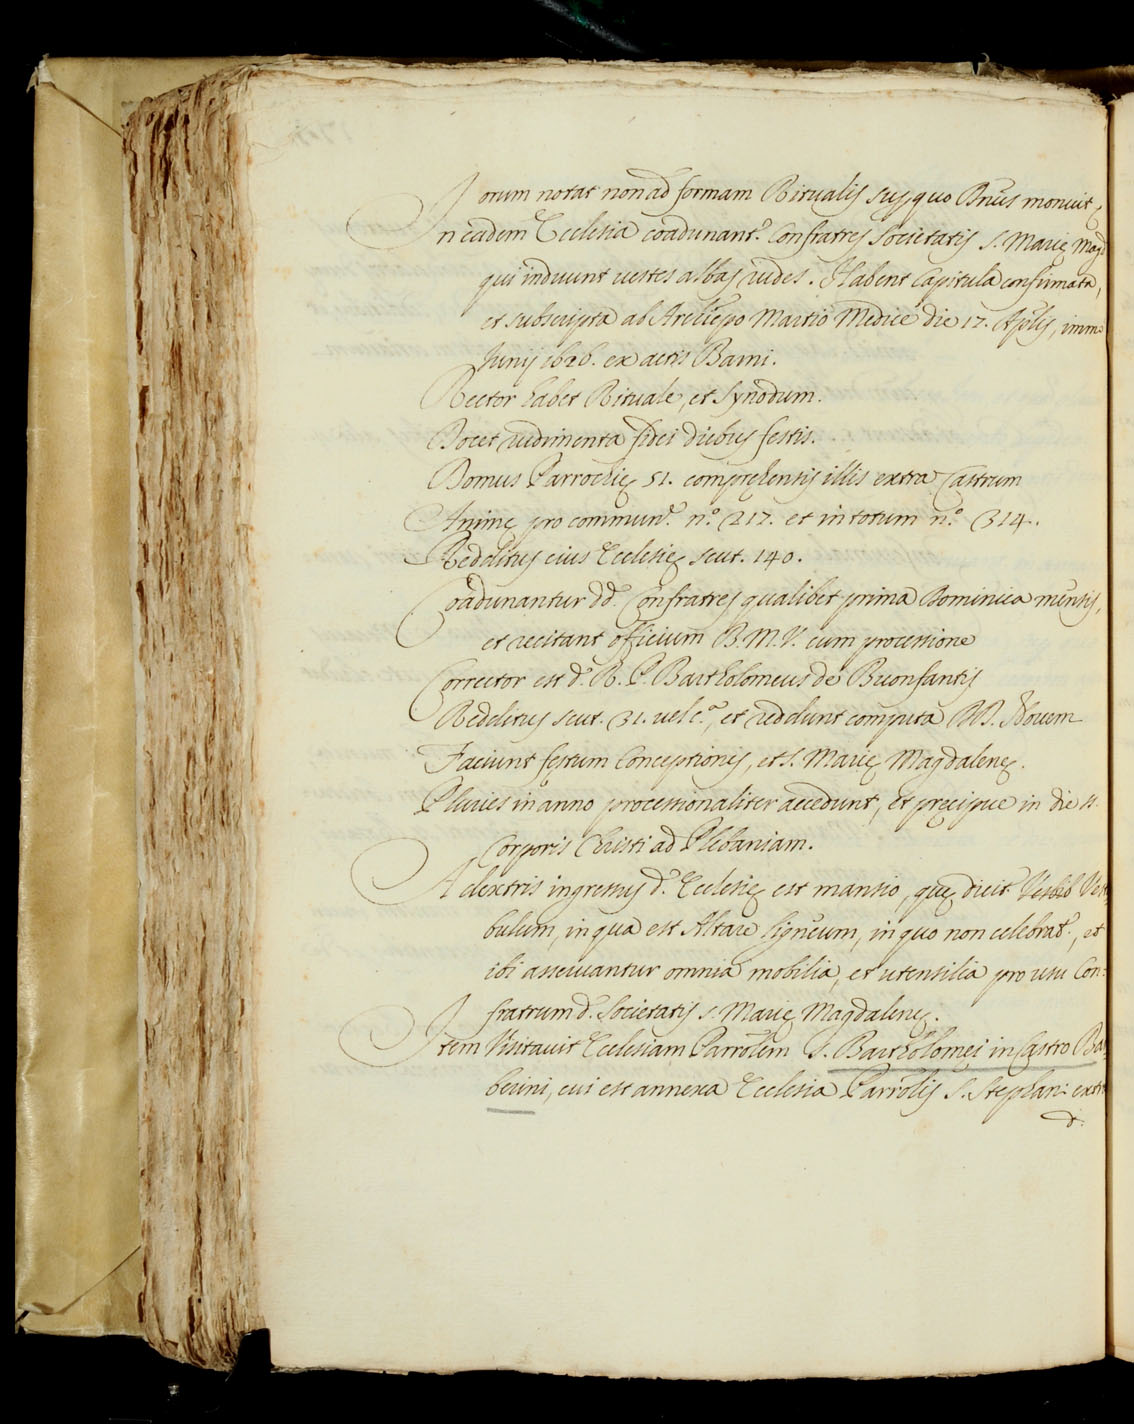 orum notat non ad formam Ritualis sup. quo Dnus monuit
In eadem Ecclesia coadunant.r Confratres Societatis S. Marię Magd
qui induunt vestes albas rudes. Habent Capitula confirmata,
et subscripta ab Archiepo Martio Medice die 17. Aplis, immo
Junij 1626. ex actis Barni.
Rector habet Rituale, et Synodum.
Docet rudimenta fidei diebus festis.
Domus Parrochię 51. comprehensis illis extra Castrum
Animę pro commun.e n.o 217. et in totum n.o 314.
Redditus eius Ecclesię scut. 140.
Coadunantur dd. Confratres qualibet prima Dominica mensis,
et recitant officium B. M. V. cum processione
Corrector est d. R. P. Bartholomeus de Buonfantis
Redditus scut. 31. vel c.a, et reddunt computa DD. Novem
Faciunt festum Conceptionis, et S. Marię Magdalenę.
Pluries in anno processionaliter accedunt, et pręcipue in die SS.
Corporis Christi ad Plebaniam.
A dextris ingressus d. Ecclesię est mansio, quę dicit.r Vesti
bulum, in qua est Altare ligneum, in quo non celebrat.r, et
ibi asservantur omnia mobilia, et utensilia pro usu Con:
fratrum d. Societatis S. Marię Magdalenę.
Item Visitavit Ecclesiam Parrolem S. Bartholomęi in Castro Bar
berini, cui est annexa Ecclesia Parrolis S. Stephani extra
d.